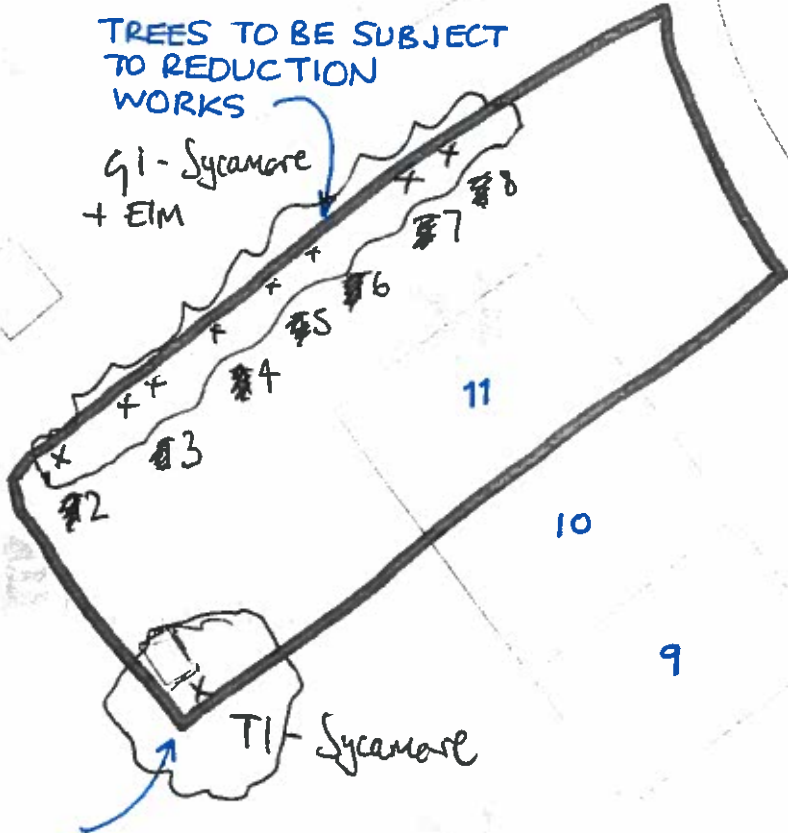 TREES TO BE SUBJECT
TO REDUCTION
WORKS
G1 - Sycamore
+ Elm
8
7
6
5
4
3
2
11
10
9
T1 - Sycamore